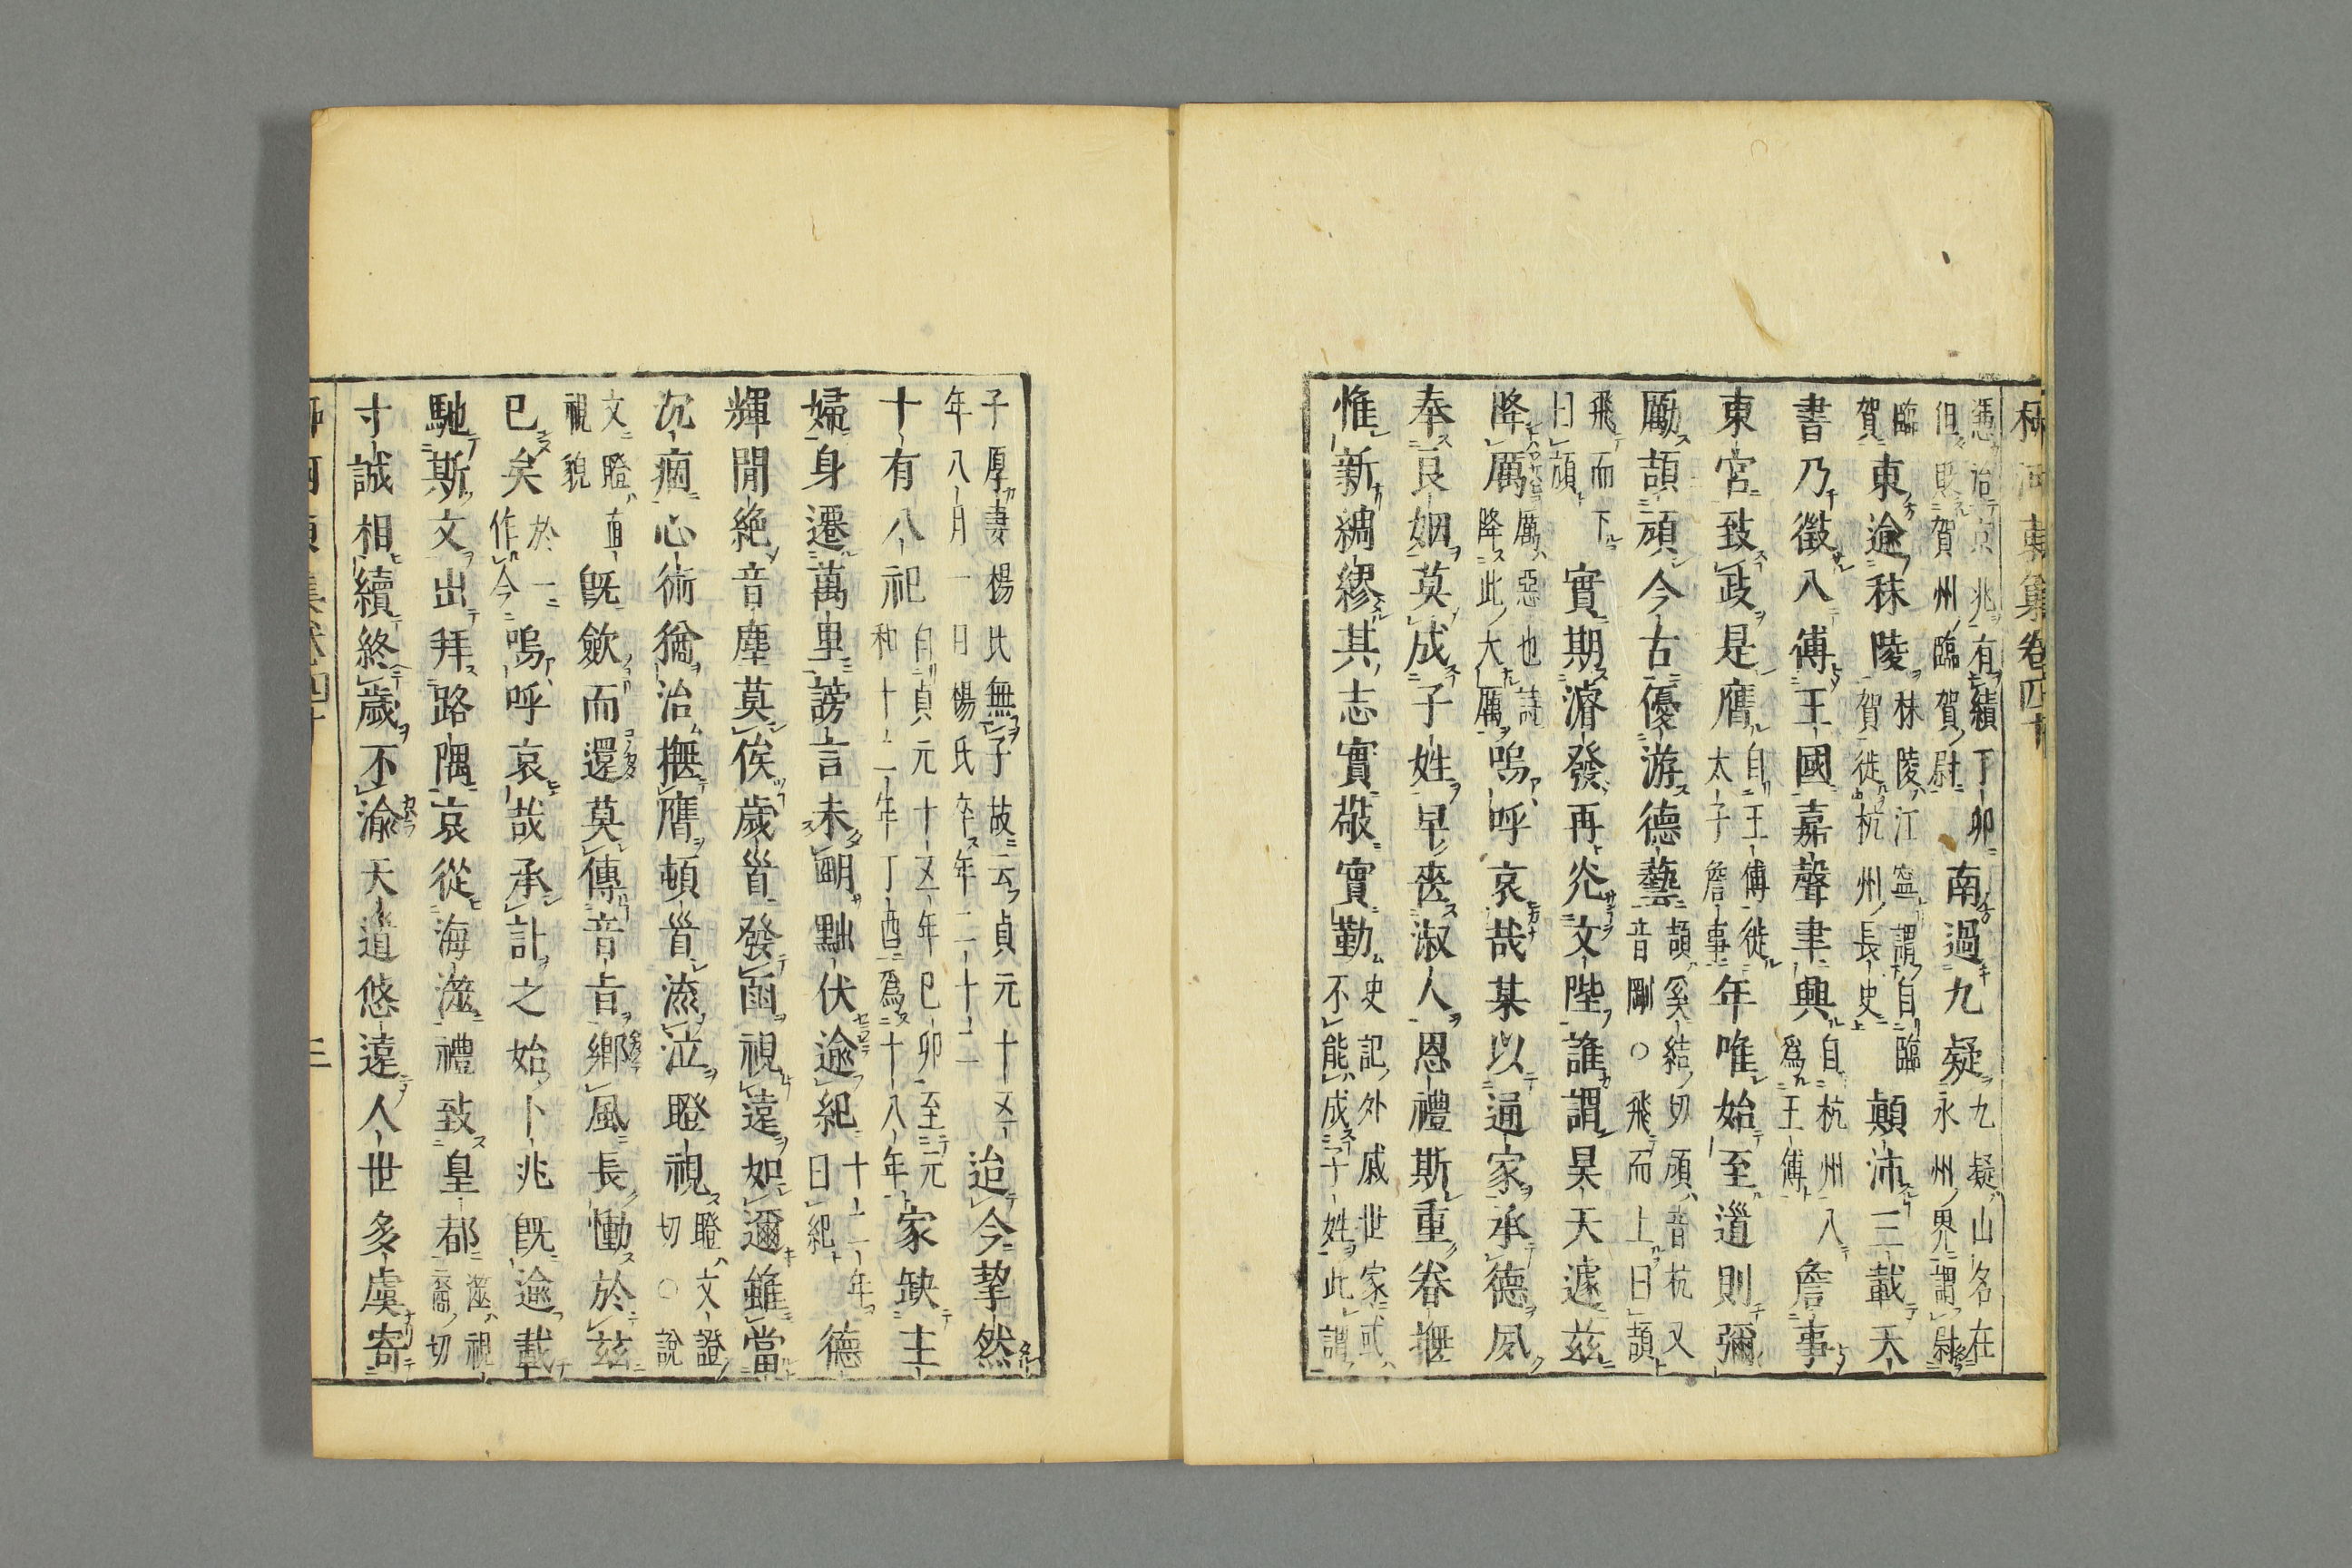 柳河東集卷四十
憑治京兆有績丁卯
但貶賀州臨賀尉
南過九疑
九疑山名在
永州界謂尉
臨
賀
東逾秣陵
秣陵江寧謂自臨
賀徙杭州長史
顛沛三載天
書乃徵入傅王國嘉聲聿興
自杭州入
爲王傅
詹事
東宮致政是膺
自王傅徙
太子詹事
年唯始至道則彌
勵頡頏今古優游德藝
頡奚結切頏音杭又
音剛○飛而上曰頡
飛而下
曰頏
實期濬發再光文陛誰謂昊天遽茲
降厲
厲惡也詩
降此大厲
嗚呼哀哉某以通家承德夙
奉良姻莫成子姓早喪淑人恩禮斯重眷撫
惟新綢繆其志實敬實勤
史記外戚世家或
不能成子姓此謂
子厚妻楊氏無子故云貞元十五
年八月一日楊氏卒年二十二
迨今摯然
十有八祀
自貞元十五年巳卯至元
和十二年丁酉爲十八年
家缺主
婦身遷萬里謗言未明黜伏逾紀
十二年
曰紀
德
輝間絶音塵莫俟歲首發函視遠如邇雖當
沉痼心術猶治撫膺頓首流泣瞪視
瞪文證
切○說
文瞪直
視貌
旣歛而還莫傳音旨鄉風長慟於茲
已矣
於一
作今
嗚呼哀哉承訃之始卜兆旣逾載
馳斯文出拜路隅哀從海澨禮致皇都
澨視
裔切
寸誠相續終歲不渝天道悠遠人世多虞寄
三